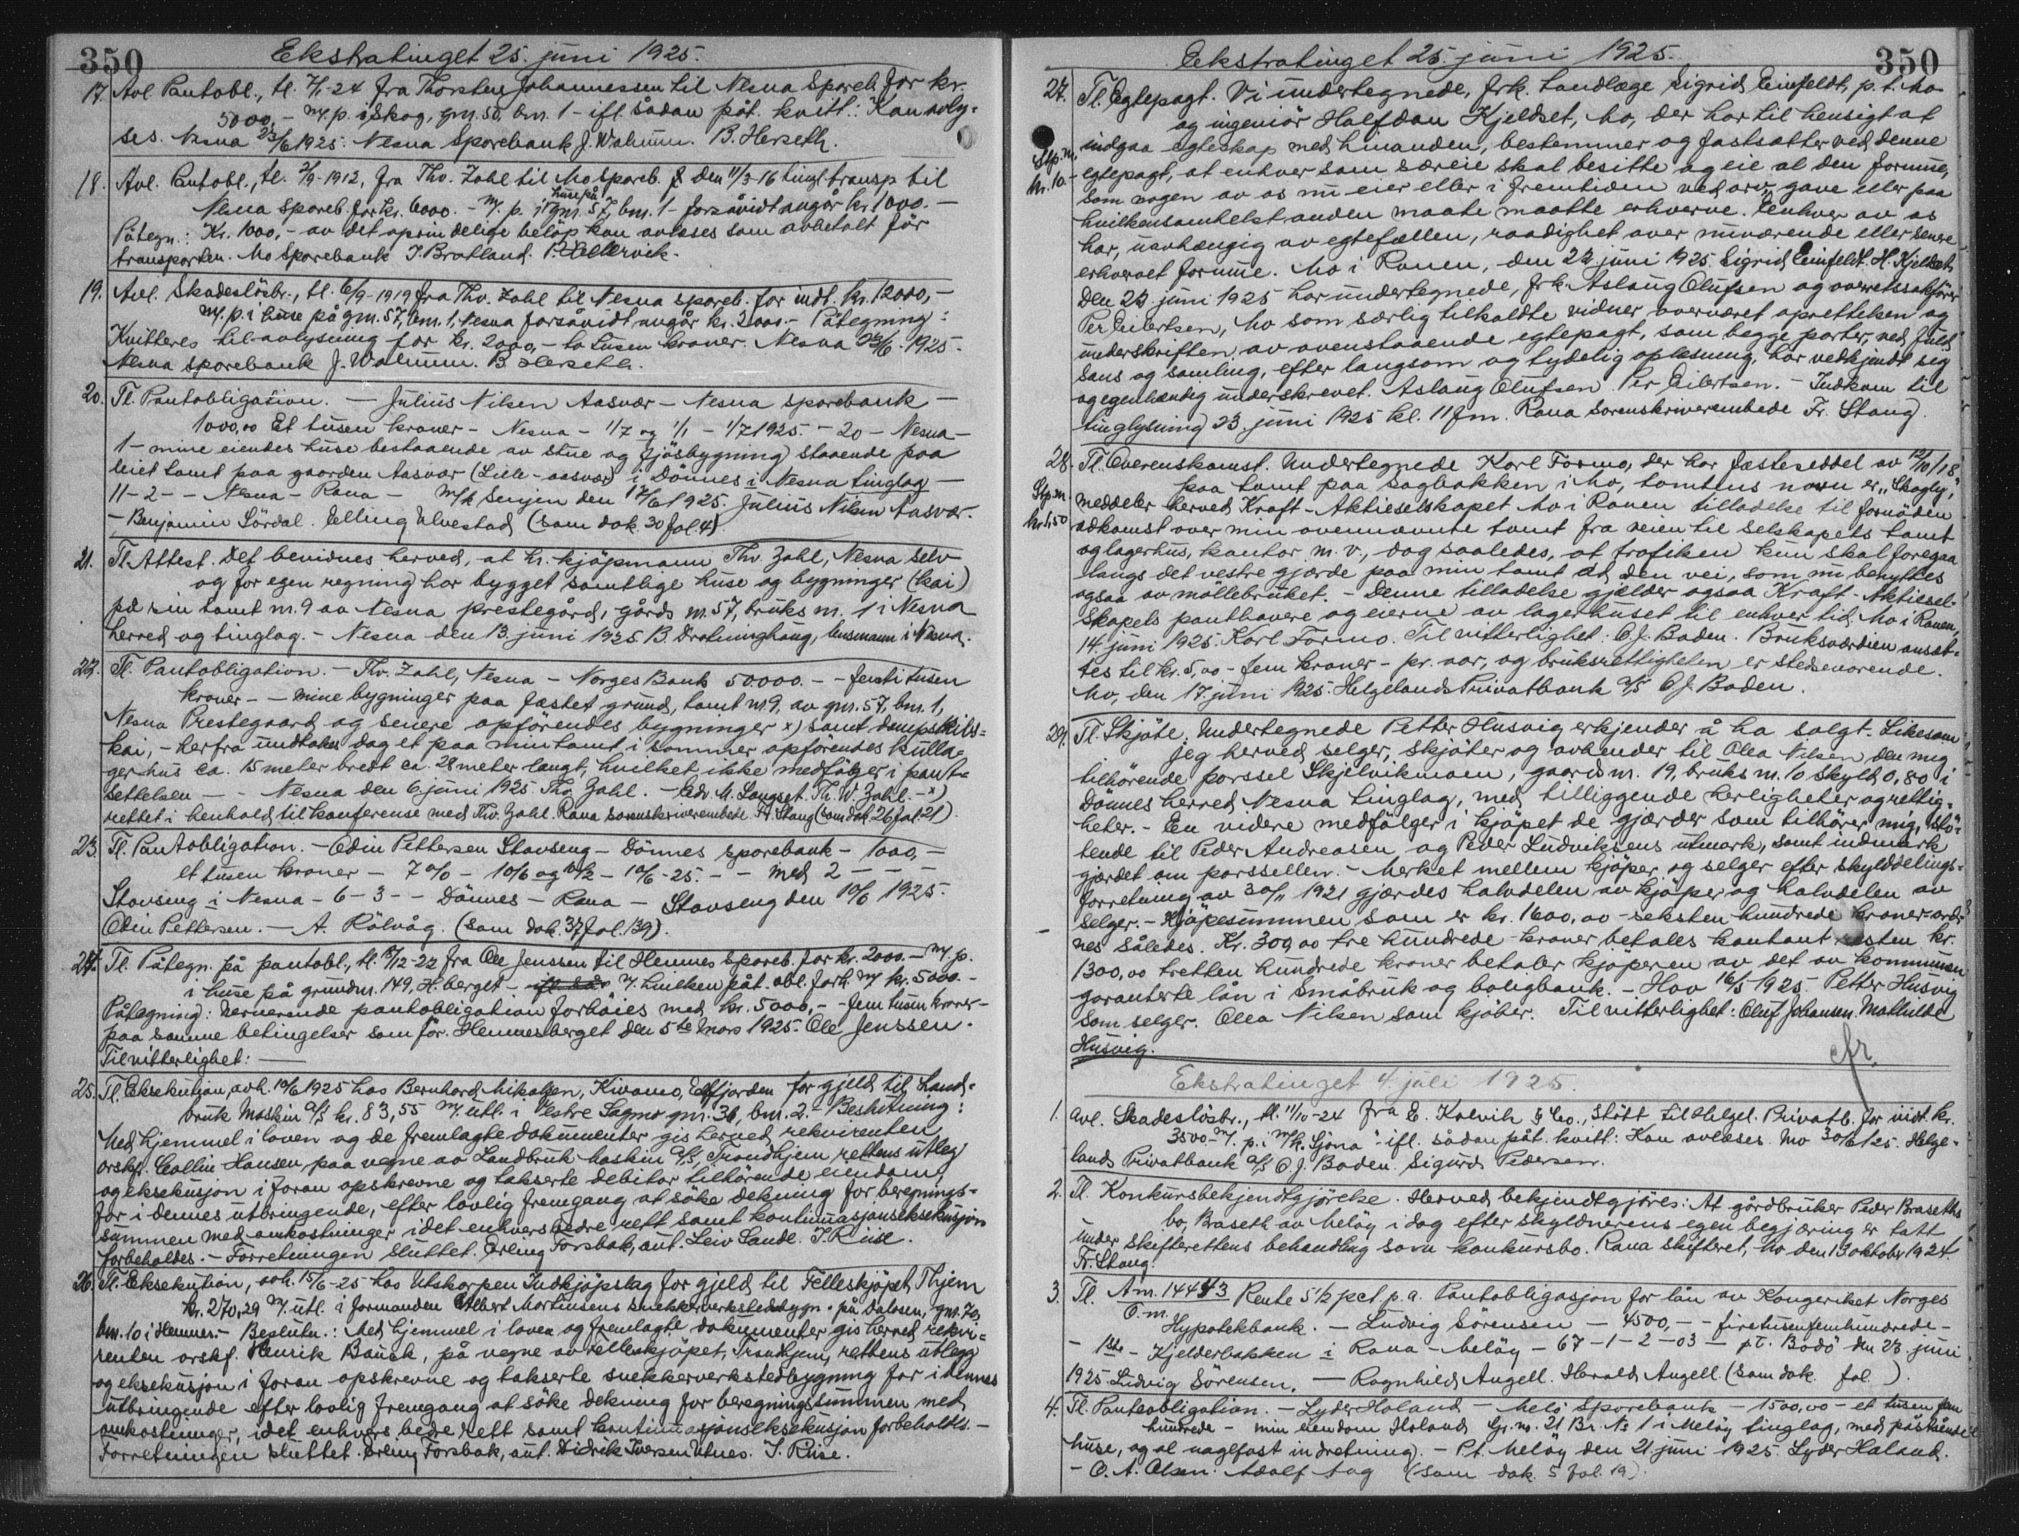 350 Ekstratinget 25. juni 1925.
17. Avl. Pantobl., tl. 7/1-24 fra Thorsten Johannessen til Nesna Spareb. for kr.
5000,- m. p. i Skog, gnr. 50, bnr. 1 - ifl. sådan påt. kvitt.: Kan avly-
ses. Nesna 23/6 1925. Nesna Sparebank J. Walnum. B. Herseth.
18. Avl. Pantobl., tl. 2/9-1912, fra Thv. Zahl til Mo spareb. den 11/3-16 tingl. transp. til
Nesna spareb. for kr. 6000.- m. p. i huse på gnr. 57, bnr. 1 - forsåvidt angår kr. 1000.-
Påtegn.: Kr. 1000,- av det oprindelige beløp kan avlæses som avbetalt før
transporten. Mo Sparebank J. Bratland.
19. Avl. Skadesløsbr., tl. 6/9-1919 fra Thv. Zahl til Nesna spareb. for indt. kr. 12000,-
m. p. i huse på gnr. 57, bnr. 1, Nesna forsåvidt angår kr. 2000.- Påtegning:
Kvitteres til avlysning for kr. 2000,- to tusen kroner. Nesna 23/6-1925.
Nesna sparebank J. Walnum. B. Herseth.
20. Tl. Pantobligasion. - Julius Nilsen Aasvær - Nesna sparebank -
1000,00 Et tusen kroner - Nesna - 1/7 og 1/1 - 1/7 1925. - 20 - Nesna -
1 - mine eiendes huse bestaaende av stue og fjøsbygning staaende paa
leiet tomt paa gaarden Aasvær (Lille-aasvær) i Dønnes i Nesna tinglag -
11 - 2 - - Nesna - Rana - m/k Senjen den 17/6 1925. Julius Nilsen Aasvær.
- Benjamin Sørdal. Elling Ulvestad (som dok. 30 fol. 4)
21. Tl. Attest. Det bevidnes herved, at hr. kjøpmann Thv. Zahl, Nesna selv
og for egen regning har bygget samtlige huse og bygninger (kai)
på sin tomt nr. 9 av Nesna prestegård, gårds nr. 57, bruks nr. 1 i Nesna
herred og tinglag. - Nesna den 13. juni 1925 B. Dronninghaug, lensmann i Nesna.
22. Tl. Pantobligation. - Thv. Zahl, Nesna - Norges Bank 50000. - - femti tusen
kroner - - mine bygninger paa fæstet grund, tomt nr. 9, av gnr. 57, bnr. 1,
Nesna Prestegaard og senere opførendes bygninger x) samt dampskibs-
kai, - herfra undtakes dog et paa min tomt i sommer opførendes kulla-
gerhus ca. 15 meter bredt ca. 28 meter langt, hvilket ikke medfølger i pant-
settelsen - - Nesna den 6 juni 1925. Thv. Zahl. - Edv. M. Langset. Th. W. Zahl. - x)
rettet i henhold til konferense med Thv. Zahl. Rana sorenskriverembede Fr. Stang (som dok. 26 fol. 21).
23. Tl. Pantobligation. - Odin Pettersen Stavseng - Dønnes sparebank - 1000,-
et tusen kroner - 7 % - 10/6 og 10/12 - 10/6-25. - - med 2 - - -
Stavseng i Nesna - 6 - 3 - - Dønnes - Rana - Stavseng den 10/6 1925.
Odin Pettersen. - A. Rølvåg. (som dok. 37 fol. 139).
24. Tl. Påtegn. på pantobl., tl. 15/12-22 fra Ole Jenssen til Hemnes spareb. for kr. 2000.- m. p.
i huse på grundnr. 149, H.berget - m. hvilken påt. obl. forh. m. kr. 5000.-
Påtegning: Nerværende pantobligation forhøies med kr. 5000,- - fem tusen kroner -
paa samme betingelser som før. Hemnesberget den 5te Mars 1925. Ole Jenssen.
Til vitterlighet: -
25. Tl. Eksekution, avh. 10/6 1925 hos Bernhard Mikalsen, Kivamo, Elfjorden for gjeld til Land-
bruk Maskin A/S kr. 83,55 m. utl. i Vestre Lagmo gnr. 36, bnr. 2. - Beslutning:
Med hjemmel i loven og de fremlagte dokumenter gis herved rekvirenten
orskf. Collin Hansen paa vegne av Landbruk Maskin A/S, Trondhjem rettens utleg
og eksekusjon i foran opskrevne og takserte debitor tilhørende eiendom
for i dennes utbringende, efter lovlig fremgang at søke dekning for beregnings-
summen med omkostninger idet enhvers bedre rett samt kontinuasjonseksekusjon
forbeholdes. - Forretningen sluttet. Erling Forsbak, aut. Leiv Sande. J. Riise.
26. Tl. Eksekution, avh. 15/6-25 hos Utskarpen Indkjøpslag for gjeld til Felleskjøpet, Thjem
kr. 270,29 m. utl. i formanden Albert Mortinsens snekkerverkstedsbygn. på Dalosen, gnr. 76,
bnr. 10 i Hemnes. - Beslutn.: Med hjemmel i loven og fremlagte dokumenter gis herved rekvi-
renten orskf. Henrik Bauck, på vegne av Felleskjøpet, Trondhjem, rettens utlegg
og eksekusjon i foran opskrevne og takserte snekkerverkstedbygning for i dennes
utbringende efter lovlig fremgang at søke dekning for beregningssummen med
omkostninger, idet enhvers bedre rett samt kontinuasjonseksekusjon forbeholdes. -
Forretningen sluttet. Erling Forsbak, aut. Didrik Iversen Utnes. J. Riise.
Ekstratinget 25. juni 1925. 350
27. Tl. Egtepagt. Vi undertegnede, frk. tandlæge Sigrid Einfeldt, p. t. Mo
og ingeniør Halfdan Kjeldset, Mo, der har til hensigt at
indgaa egteskap med hinanden, bestemmer og fastsætter ved denne
Stp. m. egtepagt, at enhver som særeie skal besitte og eie al den formue,
kr. 10.- som nogen av os nu eier eller i fremtiden ved arv, gave eller paa
hvilkensomhelst anden maate maatte erhverve. Enhver av os
har, uavhængig av egtefællen, raadighet over nuværende eller senere
erhvervet formue. Mo i Ranen, den 23. juni 1925. Sigrid Einfeldt. H. Kjeldset.
Den 23 juni 1925 har undertegnede, frk. Aslaug Olufsen og overretssakfører
Per Eilertsen, Mo som særlig tilkaldte vidner overværet oprettelsen og
underskriften av ovenstaaende egtepagt, som begge parter, ved fuld
sans og samling, efter langsom og tydelig oplæsning, har vedkjendt sig
og egenhændig underskrevet. Aslaug Olufsen Per Eilertsen. - Indkom til
tinglysning 23. juni 1925 kl. 11 fm. Rana sorenskriverembede Fr. Stang.
28. Tl. Overenskomst. Undertegnede Karl Formo, der har fæsteseddel av 12/10/18
paa tomt paa Sagbakken i Mo, tomtens navn er "Skogly",
Stp. m. meddeler herved Kraft-Aktieselskapet Mo i Ranen tilladelse til fornøden
kr. 1.50 adkomst over min ovennævnte tomt fra veien til selskapets tomt
og lagerhus, kontor m. v., dog saaledes, at trafiken kun skal foregaa
langs det vestre gjærde paa min tomt ad den vei, som nu benyttes
ogsaa av møllebruket. - Denne tilladelse gjælder ogsaa Kraft-Aktiesel-
skapets panthavere og eierne av lagerhuset til enhver tid. Mo i Ranen,
14 juni 1925. Karl Formo. Til vitterlighet: O. J. Baden. Bruksværdien ansæt-
tes til kr. 5,00 - fem kroner - pr. aar, og bruksrettigheten er stedsevarende.
Mo, den 17. juni 1925. Helgelands Privatbank A/S O. J. Baden.
29. Tl. Skjøte. Undertegnede Petter Husvig erkjender å ha solgt. Likesom
jeg herved selger, skjøter og avhender til Olea Nilsen den mig
tilhørende parssel Skjelvikmoen, gaards nr. 19, bruks nr. 10 skyld 0,80 i
Dønnes herred Nesna tinglag, med tilliggende herligheter og rettig-
heter. - En videre medfølger i kjøpet de gjærder som tilhører mig, stø-
tende til Peder Andreasen og Peder Ludviksens utmark, samt indmark
gjærdet om parssellen. - Merket mellem kjøper og selger efter skylddelings-
forretning av 30/11 1921 gjærdes halvdelen av kjøper og halvdelen av
selger. - Kjøpesummen som er kr. 1600,00 - seksten hundrede kroner - ord-
nes således. Kr. 300,00 tre hundrede kroner betales kontant resten kr.
1300,00 tretten hundrede kroner betaler kjøperen av det av kommunen
garanterte lån i Småbruk og boligbank. - Hov 16/5 1925. Petter Husvig
som selger. Olea Nilsen som kjøber. Til vitterlighet: Oluf Johansen. Mathilde
Husvig.
Ekstratinget 4. juli 1925.
1. Avl. Skadesløsbr., tl. 11/10-24 fra E. Kolvik & Co., støtt til Helgel. Privatb. for indt. kr.
3500.- m. p. i m/k. "Sjøna" - ifl. sådan påt. kvitt: Kan avlæses. Mo 30/6 25. Helge-
lands Privatbank A/S O. J. Baden. Sigurd Pedersen.
2. Tl. Konkursbekjendtgjørelse. Herved bekjendtgjøres: At gårdbruker Peder Braseths
bo, Braseth av Meløy i dag efter skyldnerens egen begjæring er tatt
under skifterettens behandling som konkursbo. Rana skifteret, Mo den 13 oktober 1924
Fr. Stang.
3. Tl. Am. 14443 Rente 5 1/2 pct. p. a. Pantobligasjon for lån av Kongeriket Norges
O. m. Hypotekbank. - Ludvig Sørensen - 4500,- - firetusenfemhundrede -
- 1ste - Kjelderbakken i Rana - Meløy - 67 - 1 - 2 - 03 - p.t. Bodø den 23. juni
1925. Ludvig Sørensen. - Ragnhild Angell. Harald Angell. (som dok. fol. ).
4. Tl. Panteobligation. - Lyder Haland - Meløy Sparebank - 1500,00 - et tusen fem
hundrede - min eiendom Haland Gr. nr. 21 Br. No 1 i Meløy tinglag, med påstående
huse, og al naglefast indretning. - P.t. Meløy den 21 juni 1925. Lyder Haland.
- O. A. Olsen. Adolf Aag (som dok. 5 fol. 19).